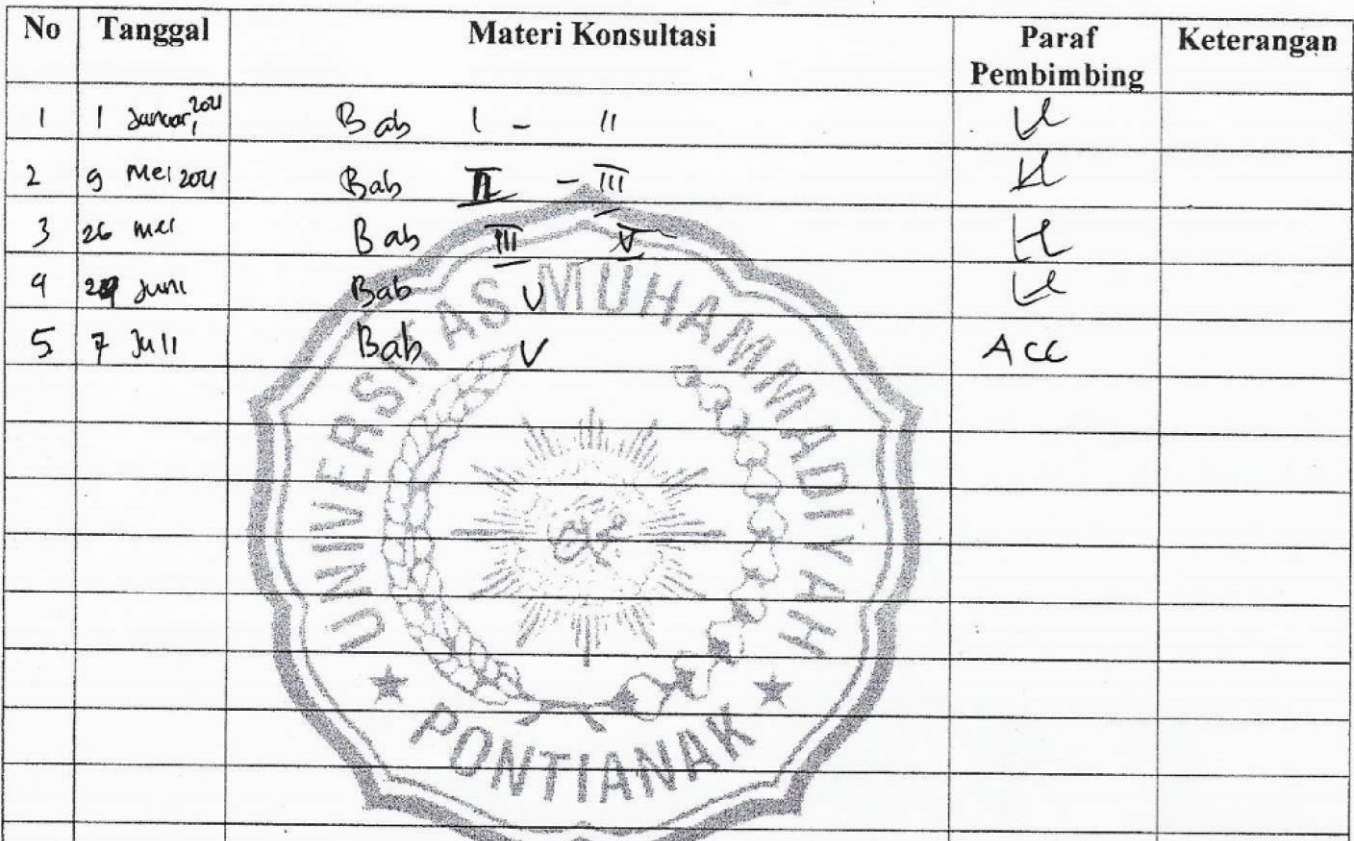 No Tanggal Materi Konsultasi Paraf Pembimbing Keterangan
1 1 Januari 2021 Bab I - II
2 9 Mei 2021 Bab II - III
3 26 Mei Bab III V
4 Juni Bab V
5. 7 Juli Bab V ACC
UNIVERSITAS MUHAMMADIYAH
PONTIANAK